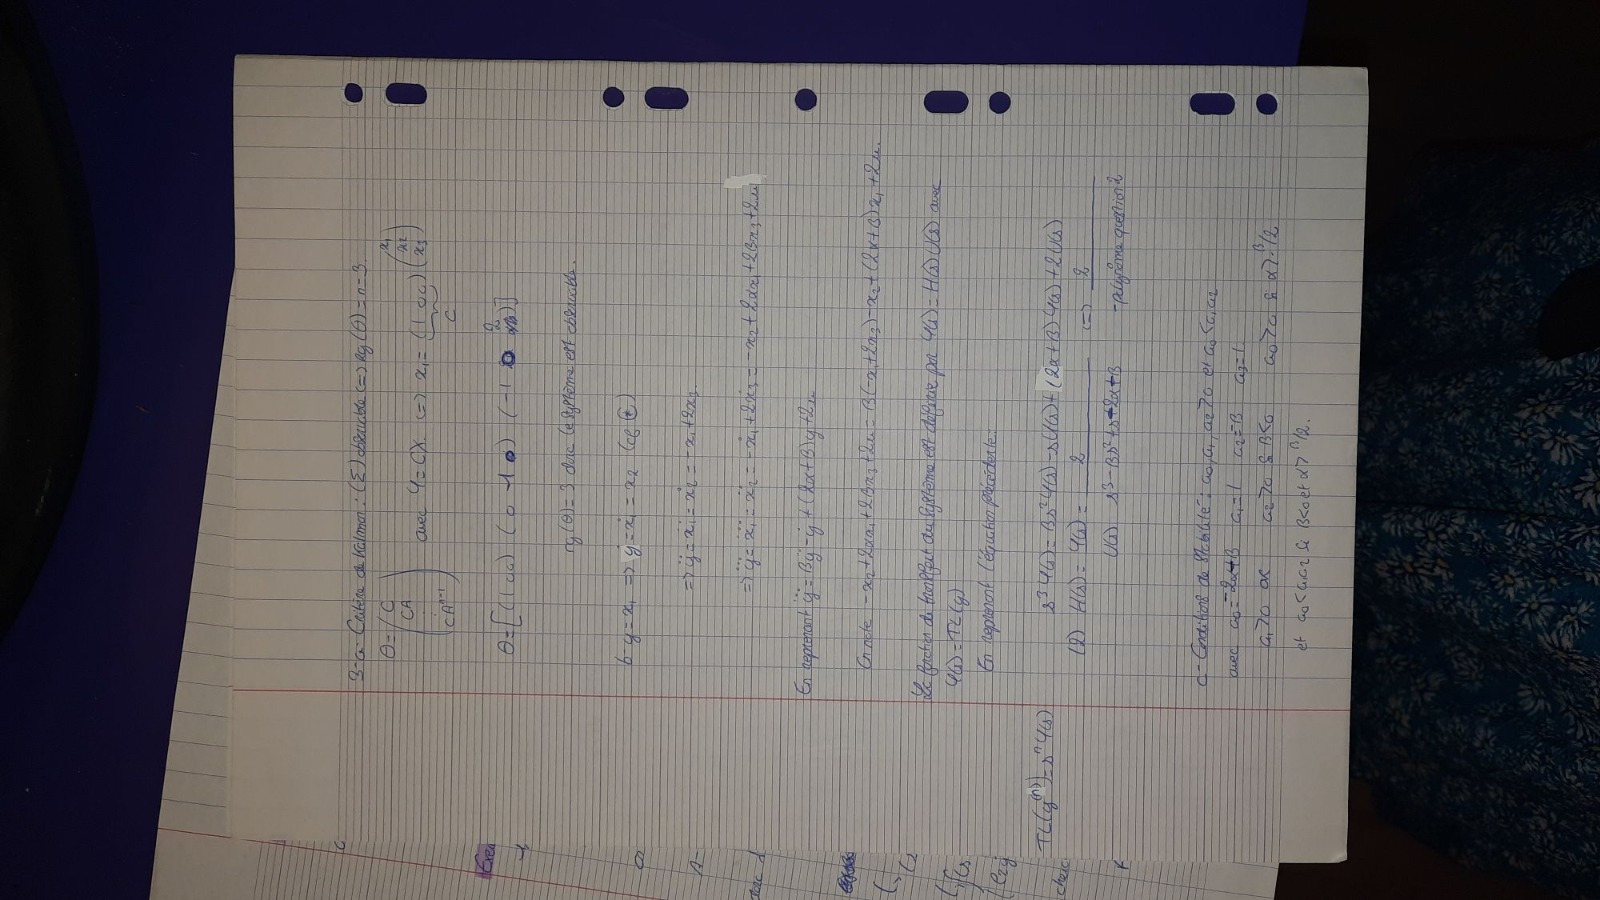 3-a- Critère de Kalman : (Σ) observable (=) Rg (θ) = n = 3.
θ = ( C
CA
:
CAⁿ⁻¹ ) avec Y = CX. (=) x₁ = (1 0 0) ( x₁
x₂
x₃ )
C
θ = [ (1 0 0) (0 1 0) (-1 0 2) ]
rg (θ) = 3 donc le système est observable.
b- y = x₁ => ẏ = ẋ₁ = x₂ (cf
=> ÿ = ẍ₁ = ẋ₂ = -x₁ + 2x₃.
=> y⃛ = x⃛₁ = ẍ₂ = -ẋ₁ + 2ẋ₃ = -x₂ + 2αx₁ + 2βx₃ + 2u
En reprenant y⃛ = βÿ - ẏ + (2α + β)y + 2u
On note -x₂ + 2αx₁ + 2βx₃ + 2u = β(-x₁ + 2x₃) - x₂ + (2α + β)x₁ + 2u.
La fonction de transfert du système est définie par Y(s) = H(s) U(s) avec
Y(s) = TL(y)
En reprenant l'équation précédente :
TL(y⁽ⁿ⁾) = sⁿY(s) s³Y(s) = βs²Y(s) - sY(s) + (2α + β) Y(s) + 2U(s)
(2) H(s) = Y(s) = 2 (=) 2
U(s) s³ - βs² + s - 2α + β - polynôme question 2
c- Conditions de stabilité : a₀, a₁, a₂ > 0 et a₀ < a₁a₂
avec a₀ = -2α + β a₁ = 1 a₂ = -β a₃ = 1.
a₁ > 0 ok a₂ > 0 si β < 0 a₀ > 0 si α > -β/2
et a₀ < a₁a₂ si β < 0 et α > β/2.